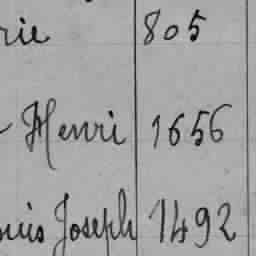 rie 805
Henri 1656
ouis Joseph 1492